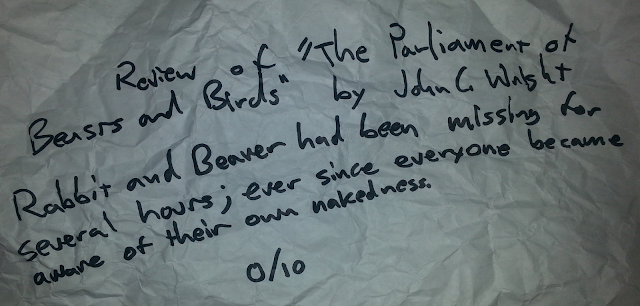 Review of "The Parliament of
Beasts and Birds" by John C Wright
Rabbit and Beaver had been missing for
several hours; ever since everyone became
aware of their own nakedness.
0/10